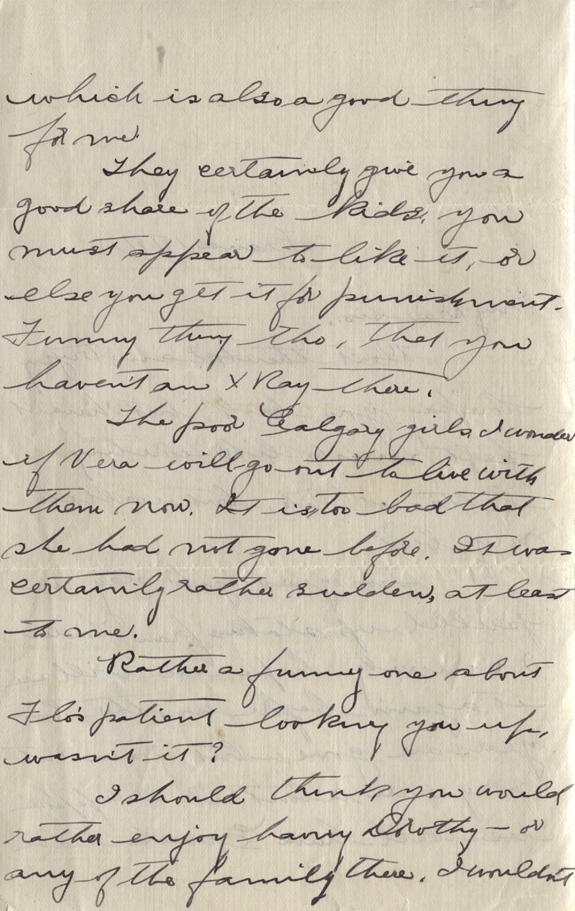 which is also a good thing
for me.
They certainly give you a
good share of the kids, you
must appear to like it, or
else you get it for punishment.
Funny thing tho, that you
haven't an X Ray there.
The poor Calgary girls I wonder
if Vera will go out to live with
them now. It is too bad that
she had not gone before. It was
certainly rather sudden, at least
to me.
Rather a funny one about
Flo's patient looking you up,
wasn't it?
I should think you would
rather enjoy having Dorothy - or
any of the family there. I wouldn't